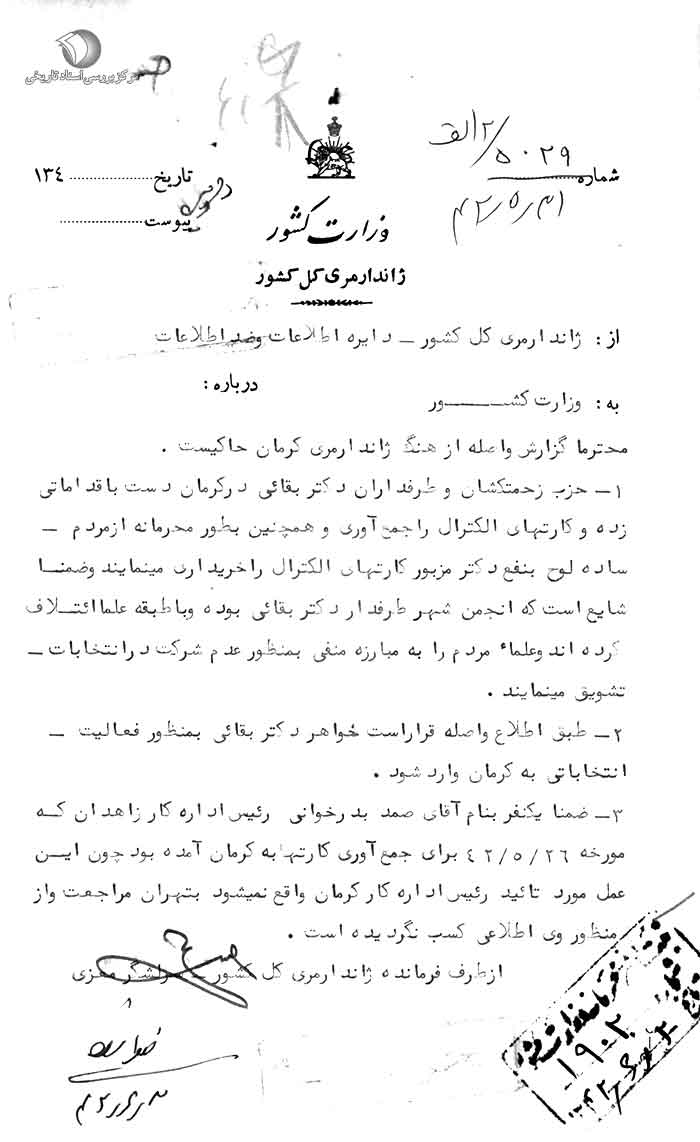 مرکز بررسی اسناد تاریخی
شماره ۵۰۲۹/۲ الف
۴۲/۵/۳۱
تاریخ .................. ۱۳۴
پیوست ..................
وزارت کشور
ژاندارمری کل کشور
از : ژاندارمری کل کشور ــ دایره اطلاعات وضد اطلاعات
درباره :
به : وزارت کشــــــور
محترما گزارش واصله از هنگ ژاندارمری کرمان حاکیست .
۱ــ حزب زحمتکشان و طرفداران دکتر بقائی درکرمان دست باقداماتی
زده و کارتهای الکترال راجمع آوری و همچنین بطور محرمانه ازمردم ــ
ساده لوح بنفع دکتر مزبور کارتهای الکترال راخریداری مینمایند وضمنا
شایع است که انجمن شهر طرفدار دکتر بقائی بوده وباطبقه علماائتـلاف
کرده اند وعلماء مردم را به مبارزه منفی بمنظور عدم شرکت درانتخابات ــ
تشویق مینمایند .
۲ــ طبق اطلاع واصله قراراست خواهر دکتر بقائی بمنظور فعالیت ــ
انتخاباتی به کرمان وارد شود .
۳ــ ضمنا یکنفر بنام آقای صمد بدرخوانی رئیس اداره کار زاهدان کـه
مورخه ۴۲/۵/۲۶ برای جمع آوری کارتها به کرمان آمده بود چون ایـن
عمل مورد تائید رئیس اداره کار کرمان واقع نمیشود بتهران مراجعت واز
منظور وی اطلاعی کسب نگردیده است .
ازطرف فرمانده ژاندارمری کل کشور ــ سرلشگر مغزی
۱۹۰۲